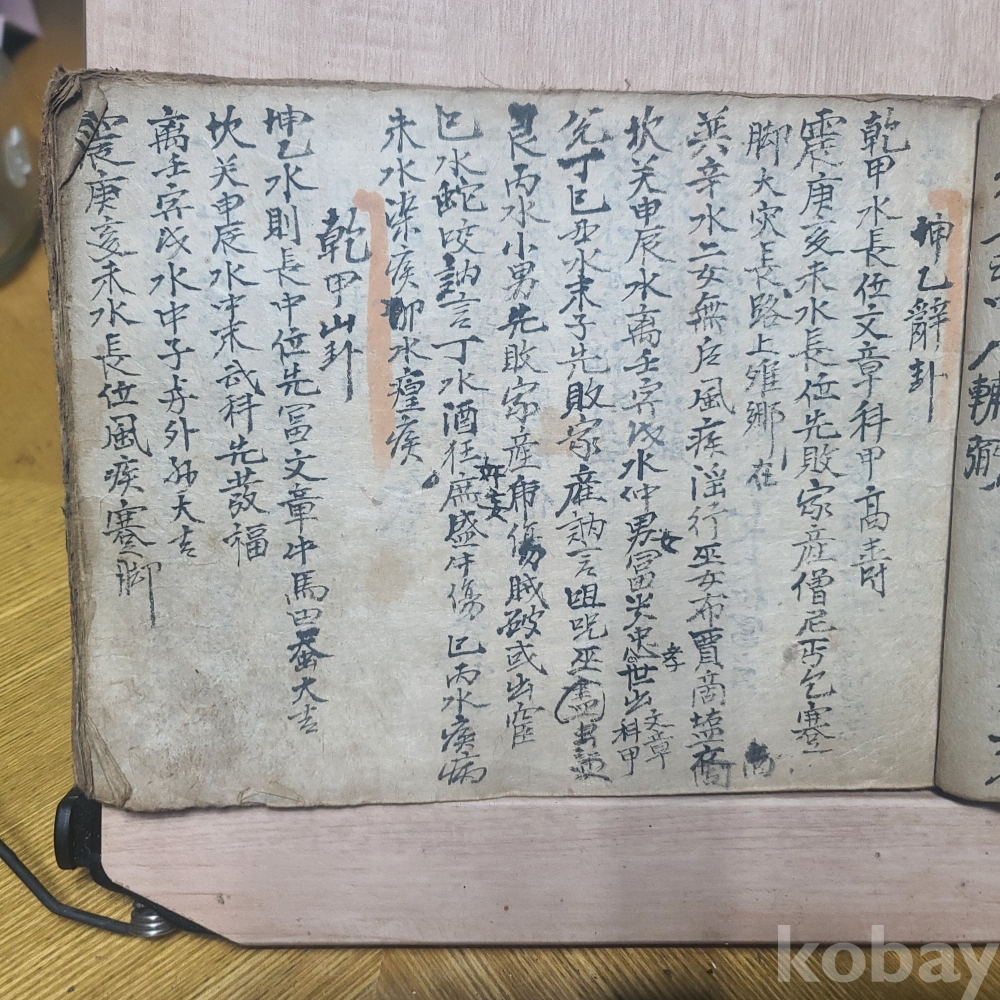 坤乙辭卦
乾甲水長位文章科甲高壽
震庚亥未水長位先敗家産僧尼丐乞蹇
脚大灾長路上離鄉在
巽辛水二女無后風疾淫行巫女布賈商塩商
坎关申辰水离壬字戌水仲男女富 忠孝世出文章科甲
兌丁巳丑水末子先敗家産訥言咀呪巫盲
艮丙水小男先敗家産 傷賊破或出宦
巳水蛇咬訥言丁水酒狂 盛牛傷巳丙水疾病
未水染疾卯水瘟疾
乾甲山卦
坤乙水則長中位先富文章牛馬田蚕大吉
坎关申辰水中末武科先發福
离壬字戌水中子孝外孫大吉
震庚亥未水長位風疾蹇脚
輔弼
kobay